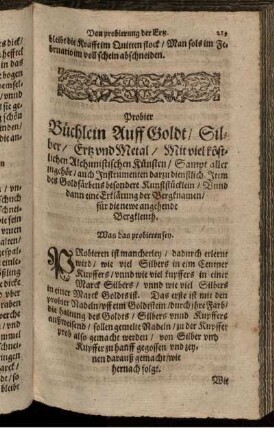 Von probierung der Ertz. 219
bleibt die Krafft im Quitten stock / Man sols im Fe-
bruario im voll schein abschneiden.
Probier
Büchlein Auff Goldt / Sil-
ber / Ertz vnd Metal / Mit viel köst-
lichen Alchumistischen Künsten / Sampt aller
zugehör / auch Instrumenten darzu dienstlich. Item
des Goldfärbens besondere Kunststücklein / Vnnd
dann eine Erklärung der Bergknamen /
für die newe angehende
Bergkleuth.
Was das probieren sey.
PRobieren ist mancherley / dadurch erlernt
wird / wie viel Silbers in ein Centner
Kupffers / vnnd wie viel kupffers in einer
Marck Silbers / vnnd wie viel Silbers
in einer Marck Goldes ist. Das erste ist mit den
probier Nadeln / vff eim Goldestein / durch ihre Farb /
die haltung des Goldts / Silbers vnnd Kupffers
außweisend / sollen gemelte Nadeln / zu der Kupffer
prob also gemacht werden / von Silber vnd
Kupffer zu hauff gegossen vnd zey-
nen darauß gemacht / wie
hernach folgt.
Wie